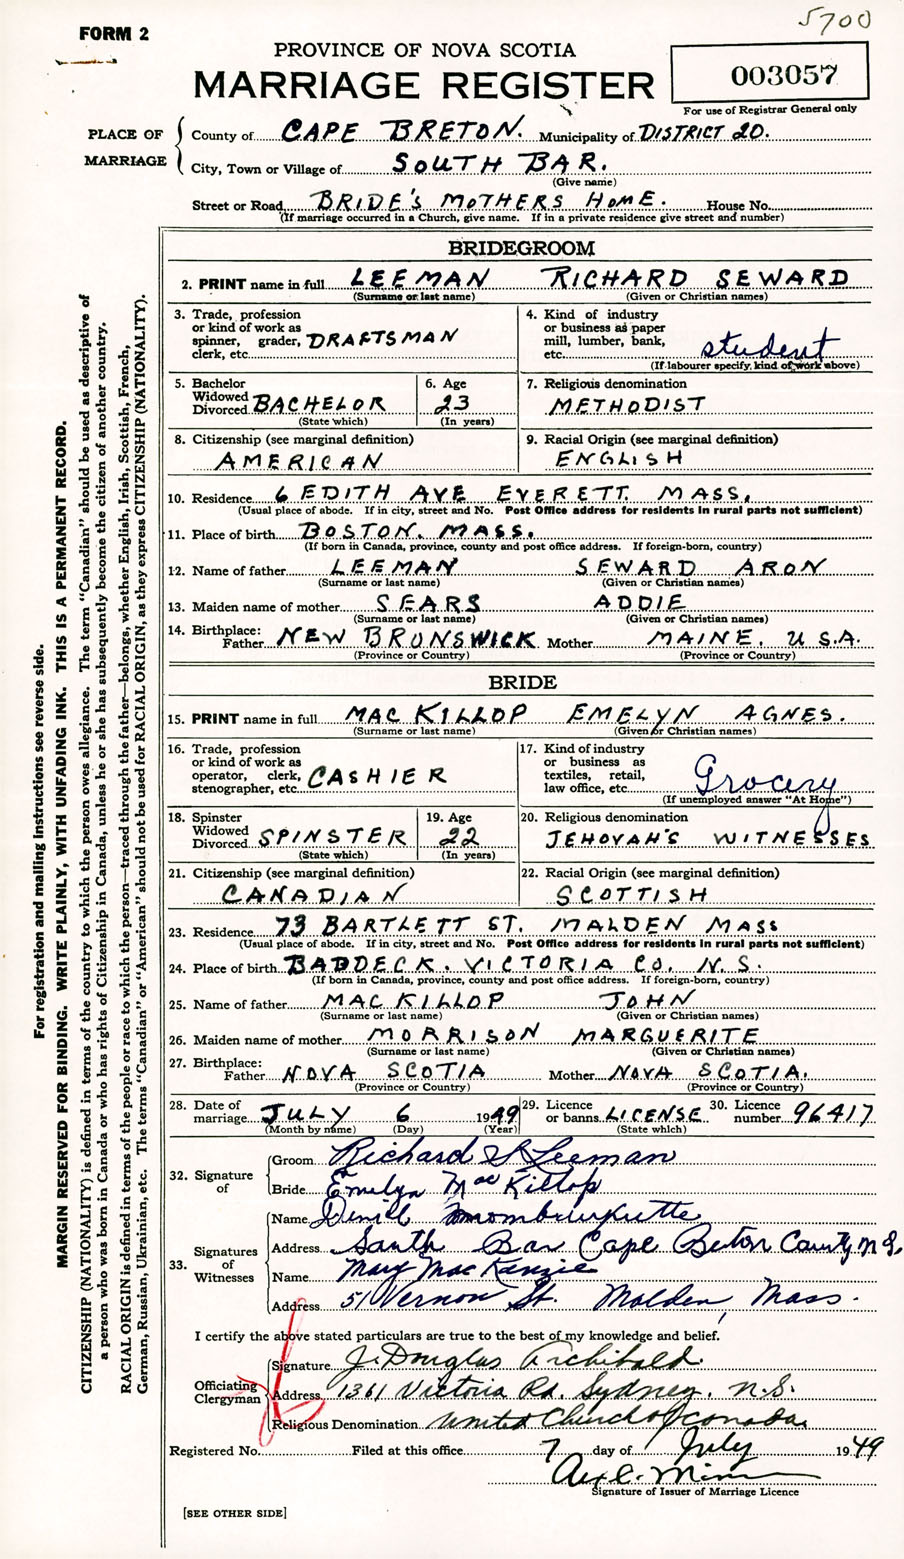 5700
FORM 2
PROVINCE OF NOVA SCOTIA
MARRIAGE REGISTER
003057
For use of Registrar General only
PLACE OF MARRIAGE
County of CAPE BRETON. Municipality of DISTRICT 20.
City, Town or Village of SOUTH BAR.
(Give name)
Street or Road BRIDE'S MOTHERS HOME. House No.
(If marriage occurred in a Church, give name. If in a private residence give street and number)
BRIDEGROOM
2. PRINT name in full LEEMAN RICHARD SEWARD
(Surname or last name) (Given or Christian names)
3. Trade, profession
or kind of work as
spinner, grader,
clerk, etc. DRAFTSMAN
4. Kind of industry
or business as paper
mill, lumber, bank,
etc. student
(If labourer specify kind of work above)
5. Bachelor
Widowed
Divorced BACHELOR
(State which)
6. Age
23
(In years)
7. Religious denomination
METHODIST
8. Citizenship (see marginal definition)
AMERICAN
9. Racial Origin (see marginal definition)
ENGLISH
10. Residence 6 EDITH AVE EVERETT. MASS.
(Usual place of abode. If in city, street and No. Post Office address for residents in rural parts not sufficient)
11. Place of birth BOSTON. MASS.
(If born in Canada, province, county and post office address. If foreign-born, country)
12. Name of father LEEMAN SEWARD ARON
(Surname or last name) (Given or Christian names)
13. Maiden name of mother SEARS ADDIE
(Surname or last name) (Given or Christian names)
14. Birthplace:
Father NEW BRUNSWICK Mother MAINE, U.S.A.
(Province or Country) (Province or Country)
BRIDE
15. PRINT name in full MAC KILLOP EMELYN AGNES.
(Surname or last name) (Given or Christian names)
16. Trade, profession
or kind of work as
operator, clerk,
stenographer, etc. CASHIER
17. Kind of industry
or business as
textiles, retail,
law office, etc. Grocery
(If unemployed answer "At Home")
18. Spinster
Widowed
Divorced SPINSTER
(State which)
19. Age
22
(In years)
20. Religious denomination
JEHOVAH'S WITNESSES
21. Citizenship (see marginal definition)
CANADIAN
22. Racial Origin (see marginal definition)
SCOTTISH
23. Residence 73 BARTLETT ST. MALDEN MASS
(Usual place of abode. If in city, street and No. Post Office address for residents in rural parts not sufficient)
24. Place of birth BADDECK. VICTORIA CO. N.S.
(If born in Canada, province, county and post office address. If foreign-born, country)
25. Name of father MAC KILLOP JOHN
(Surname or last name) (Given or Christian names)
26. Maiden name of mother MORRISON MARGUERITE
(Surname or last name) (Given or Christian names)
27. Birthplace:
Father NOVA SCOTIA Mother NOVA SCOTIA.
(Province or Country) (Province or Country)
28. Date of
marriage JULY 6 1949
(Month by name) (Day) (Year)
29. Licence
or banns LICENSE
(State which)
30. Licence
number 96417
32. Signature
of
Groom Richard S Leeman
Bride Emelyn MacKillop
33. Signatures
of
Witnesses
Name
Address South Bar Cape Breton County N.S.
Name Mary MacKenzie
Address 51 Vernon St. Malden, Mass.
I certify the above stated particulars are true to the best of my knowledge and belief.
Officiating
Clergyman
Signature J. Douglas Archibald
Address 1361 Victoria Rd. Sydney. N.S.
Religious Denomination United Church of Canada.
Registered No. Filed at this office 7 day of July 1949
Signature of Issuer of Marriage Licence
[SEE OTHER SIDE]
For registration and mailing instructions see reverse side.
MARGIN RESERVED FOR BINDING. WRITE PLAINLY, WITH UNFADING INK. THIS IS A PERMANENT RECORD.
CITIZENSHIP (NATIONALITY) is defined in terms of the country to which the person owes allegiance. The term "Canadian" should be used as descriptive of
a person who was born in Canada or who has rights of Citizenship in Canada, unless he or she has subsequently become the citizen of another country.
RACIAL ORIGIN is defined in terms of the people or race to which the person—traced through the father—belongs, whether English, Irish, Scottish, French,
German, Russian, Ukrainian, etc. The terms "Canadian" or "American" should not be used for RACIAL ORIGIN, as they express CITIZENSHIP (NATIONALITY).